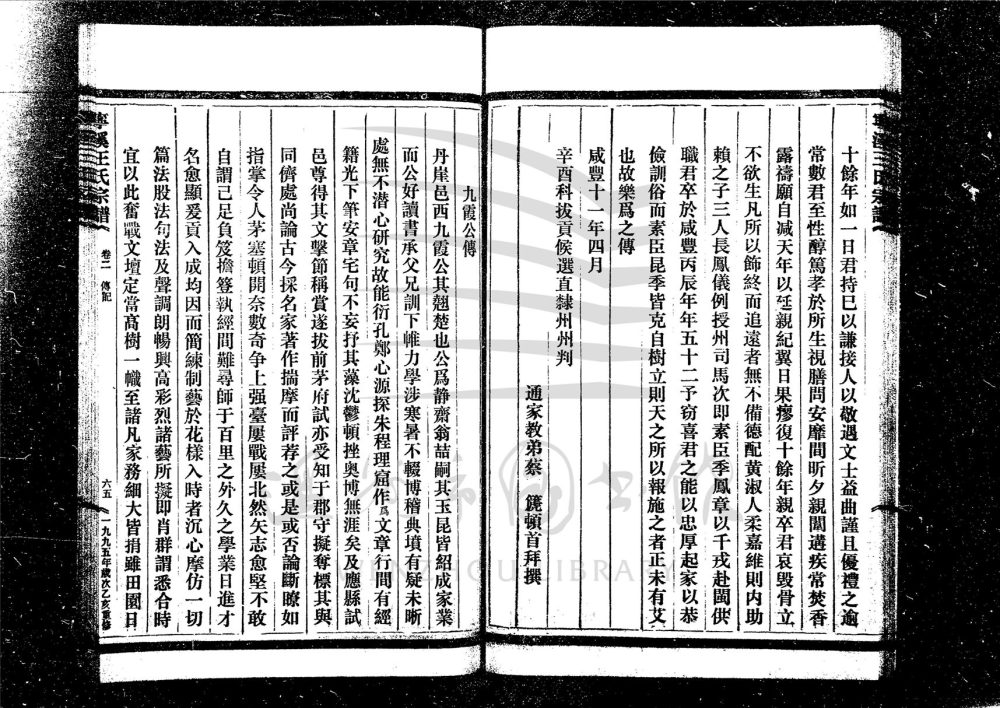 十餘年如一日君持巳以謙接人以敬遇文士益曲謹且優禮之逾
常數君至性醇篤孝於所生視膳問安靡間昕夕親闈遘疾常焚香
露禱願自減天年以延親紀翼日果瘳復十餘年親卒君哀毀骨立
不欲生凡所以飾終而追遠者無不備德配黃淑人柔嘉維則内助
賴之子三人長鳳儀例授州司馬次即素臣季鳳章以千戎赴閩供
職君卒於咸豐丙辰年年五十二予窃喜君之能以忠厚起家以恭
儉訓俗而素臣昆季皆克自樹立則天之所以報施之者正未有艾
也故樂爲之傳
咸豐十一年四月
辛酉科拔貢候選直隸州州判
通家教弟蔡 篪頓首拜撰
九霞公傳
丹崖邑西九霞公其翹楚也公爲静齋翁喆嗣其玉昆皆紹成家業
而公好讀書承父兄訓下帷力學涉寒暑不輟博稽典墳有疑未晰
處無不潜心研究故能衍孔鄭心源探朱程理窟作爲文章行間有經
籍光下筆安章宅句不妄抒其藻沈鬱頓挫奥博無涯矣及應縣試
邑尊得其文擊節稱賞遂拔前茅府試亦受知于郡守擬奪標其與
同儕處尚論古今採名家著作揣摩而評荐之或是或否論斷瞭如
指掌令人茅塞頓開奈數奇争上强臺屢戰屢北然矢志愈堅不敢
自謂己足負笈擔簦執經問難尋師于百里之外久之學業日進才
名愈顯爰貢入成均因而簡練制藝於花樣入時者沉心摩仿一切
篇法股法句法及聲調朗暢興高彩烈諸藝所擬即肖群謂悉合時
宜以此奮戰文壇定當高樹一幟至諸凡家務細大皆捐雖田園日
寧溪王氏宗譜
卷二 傳記
六五
一九九五年歲次乙亥重修